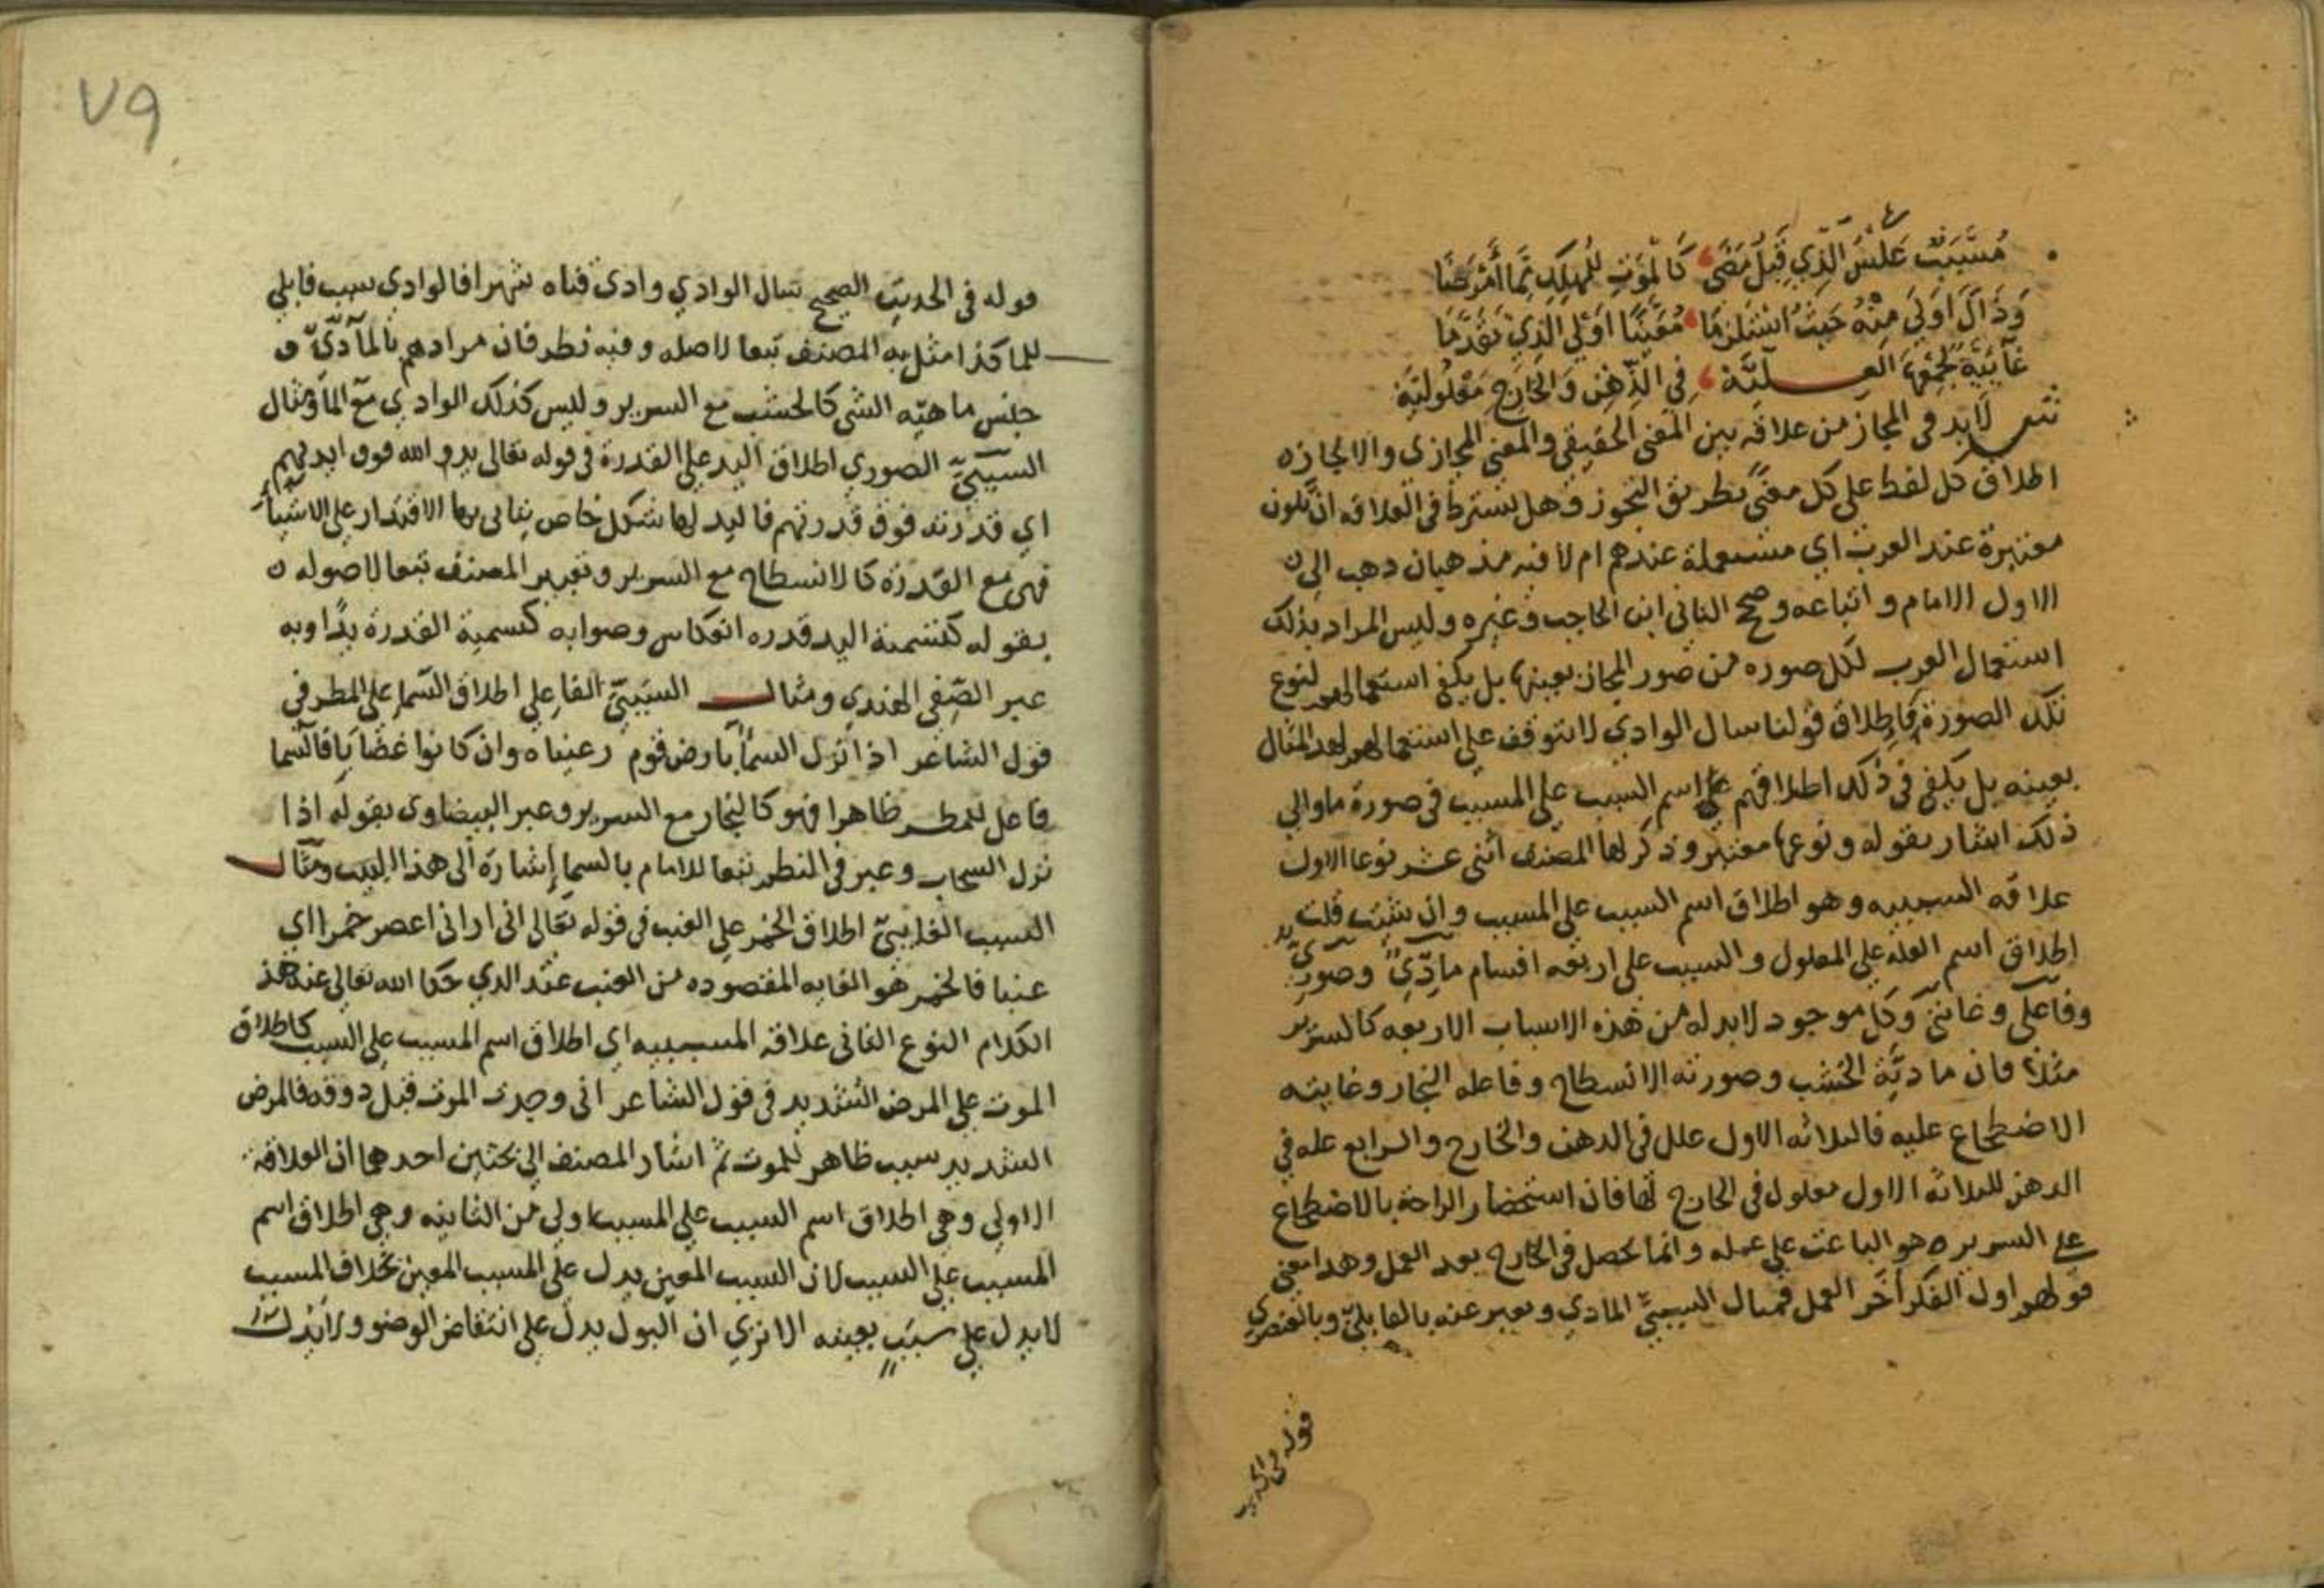 مُسَبَّبٌ عَكْسُ الَّذِي قَبْلُ مَضَى كَالْمَوْتِ لِلْمُهْلِكِ مِمَّا أَمْرَضَا
وَذَاكَ اَوْلَى مِنْهُ حَيْثُ اسْتَلْزَمَا مُعَيَّنًا اَوْلَى الَّذِي تَقَدَّمَا
غَآئِيَّةٌ لِجَمْعِهَا العلِيَّة فِي الذِّهْنِ وَالْخَارِجِ مَعْلُولِيَّة
ش لابد في المجاز من علاقه بين المعنى الحقيقي والمعنى المجازي والا لجاز
اطلاق كل لفظ على كل معنًى بطريق التجوز وهل يشترط في العلاقه ان تكون
معتبرة عند العرب اي مستعملة عندهم ام لا فيه مذهبان ذهب الى
الاول الامام واتباعه وصحح الثاني ابن الحاجب وغيره وليس المراد بذلك
استعمال العرب لكل صوره من صور المجاز بعينها بل يكفي استعمالهم لنوع
تلك الصورة فاطلاق قولنا سال الوادي لا يتوقف على استعمالهم لهذا المثال
بعينه بل يكفي في ذلك اطلاقهم اسم السبب على المسبب في صورة ما والى
ذلك اشار بقوله ونوعها معتبر وذكر لها المصنف اثني عشر نوعا الاول
علاقه السببيه وهو اطلاق اسم السبب على المسبب وان شئت قلت
اطلاق اسم العله على المعلول والسبب على اربعه اقسام مادّيّ وصوريّ
وفاعلي وغائيّ وكل موجود لابد له من هذه الاسباب الاربعه كالسرير
مثلا فان ماديَّة الخشب وصورته الانسطاح وفاعله النجار وغايته
الاضطجاع عليه فالثلاثه الاول علل في الذهن والخارج والرابع عله في
الذهن للثلاثه الاول معلول في الخارج لها فان استحضار الراحة بالاضطجاع
على السرير هو الباعث على عمله وانما تحصل في الخارج بعد العمل وهذا معنى
قولهم اول الفكر آخر العمل فمثال السببيّ المادي ويعبر عنه بالقابليّ وبالعنصري
قوله في الحديث
٧٩
قوله في الحديث الصحيح سال الوادي وادي قناه شهرا فالوادي سبب قابلي
للما كذا مثل به المصنف تبعا لاصله وفيه نظر فان مرادهم بالمآدّيّ
جنس ماهيّه الشي كالخشب مع السرير وليس كذلك الوادي مع الما ومثال
السببيّ الصوري اطلاق اليد على القدرة في قوله تعالى يد الله فوق ايديهم
اي قدرته فوق قدرتهم فاليد لها شكل خاص يتاتى بها الاقتدار على الاشياء
فهي مع القدرة كالانسطاح مع السرير وتعبير المصنف تبعا لاصوله
بقوله كتسمية اليد قدره انعكاس وصوابه كتسمية القدرة يدًا وبه
عبر الصفي الهندي ومثال السببيّ الفاعلي اطلاق السّما على المطر في
قول الشاعر اذا نزل السمآ بارض قوم رعيناه وان كانوا غضابا فالسّما
فاعل للمطر ظاهرا فهو كالنجار مع السرير وعبر البيضاوي بقوله اذا
نزل السحاب وعبر في النظم تبعا للامام بالسما إشارة الى هذا البيت ومثال
السبب الغايىّ اطلاق الخمر على العنب في قوله تعالى اني اراني اعصر خمرا اي
عنبا فالخمر هو الغايه المقصوده من العنب عند الذي حكا الله تعالى عنه هذ
الكلام النوع الثاني علاقة المسببيه اي اطلاق اسم المسبب على السبب كاطلاق
الموت على المرض الشديد في قول الشاعر اني وجدت الموت قبل ذوقه فالمرض
الشديد سبب ظاهر للموت ثم اشار المصنف الى بحثين احدهما ان العلاقة
الاولى وهي اطلاق اسم السبب على المسبب اولى من الثانيه وهي اطلاق اسم
المسبب على السبب لان السبب المعين يدل على المسبب المعين بخلاف المسبب
لا يدل على سبب بعينه الا تري ان البول يدل على انتقاض الوضوء ولا يدل